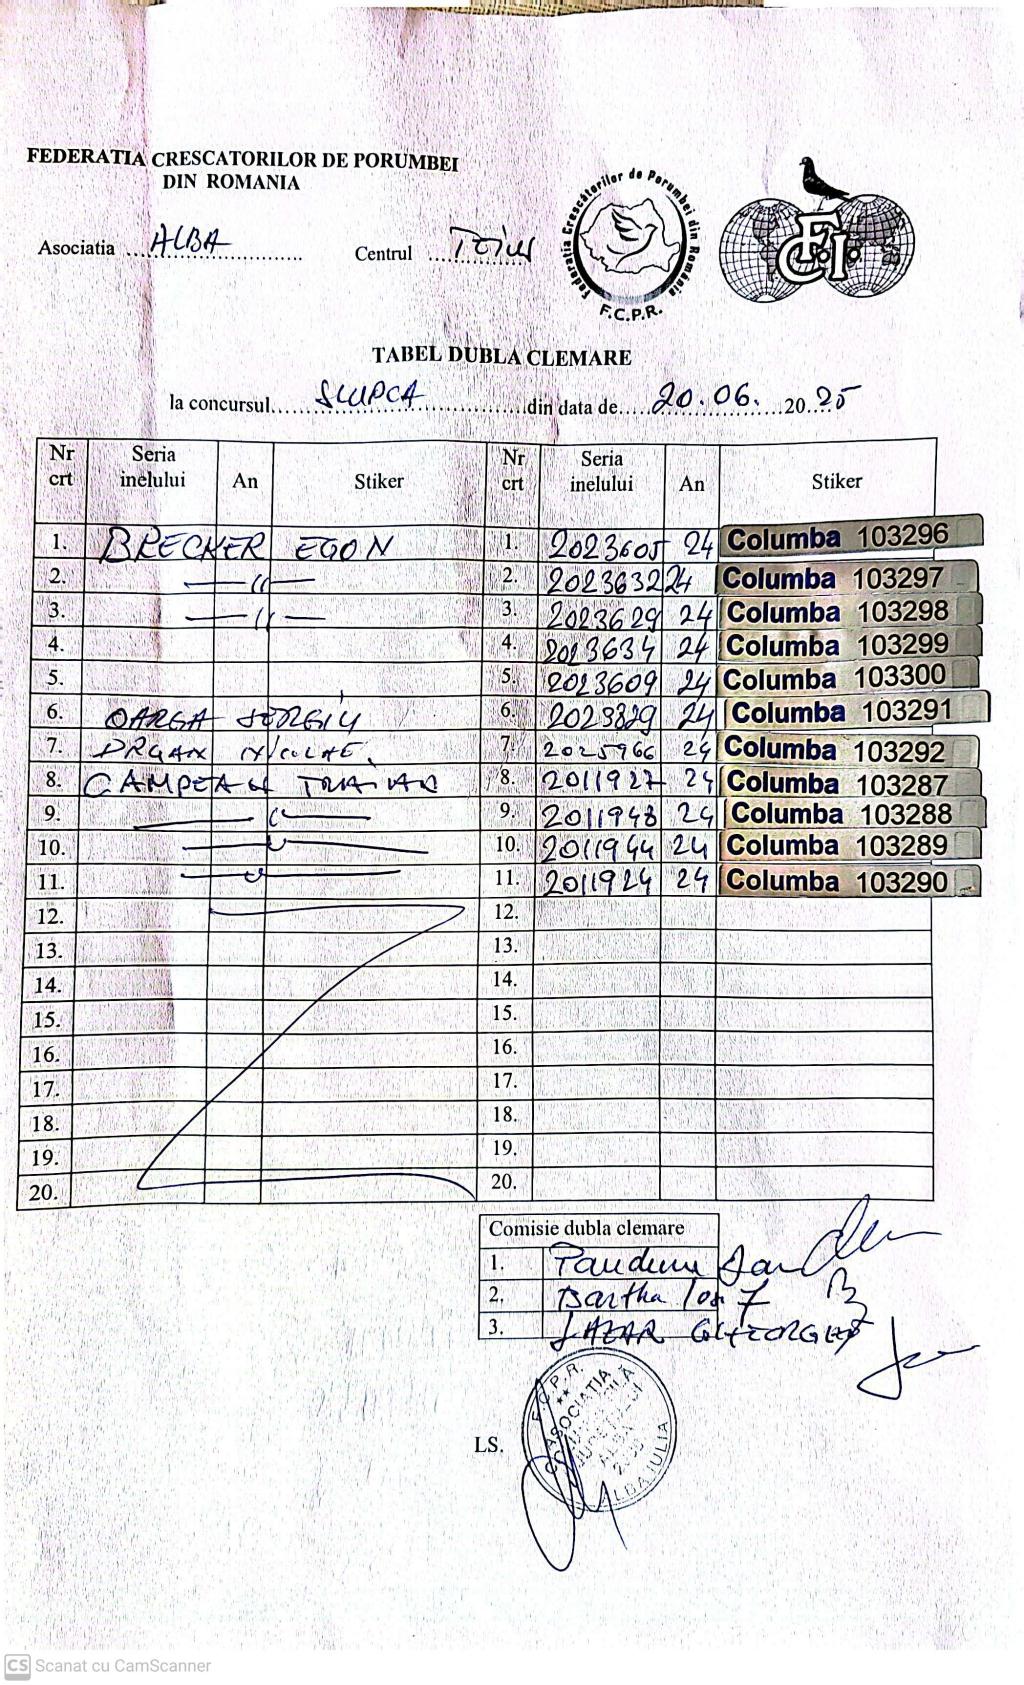 FEDERATIA CRESCATORILOR DE PORUMBEI
DIN ROMANIA
Asociatia ALBA Centrul Teius
Federatia Crescătorilor de Porumbei din România
F.C.P.R.
F.C.I.
TABEL DUBLA CLEMARE
la concursul SLUPCA din data de 20.06. 2025
Nr crt Seria inelului An Stiker Nr crt Seria inelului An Stiker
1. BRECKER EGON 1. 2023605 24 Columba 103296
2. —〃— 2. 2023632 24 Columba 103297
3. —〃— 3. 2023629 24 Columba 103298
4. 4. 2023634 24 Columba 103299
5. 5. 2023609 24 Columba 103300
6. OARGA SERGIU 6. 2023829 24 Columba 103291
7. DRGAN NICOLAE 7. 2025966 24 Columba 103292
8. CAMPEAN TRAIAN 8. 2011927 24 Columba 103287
9. —〃— 9. 2011948 24 Columba 103288
10. —〃— 10. 2011944 24 Columba 103289
11. —〃— 11. 2011924 24 Columba 103290
12. 12.
13. 13.
14. 14.
15. 15.
16. 16.
17. 17.
18. 18.
19. 19.
20. 20.
Comisie dubla clemare
1.
2. Bartha Iosif
3. LAZAR GHEORGHE
LS.
F.C.P.R.
ASOCIATIA
ALBA
ALBA IULIA
CS Scanat cu CamScanner